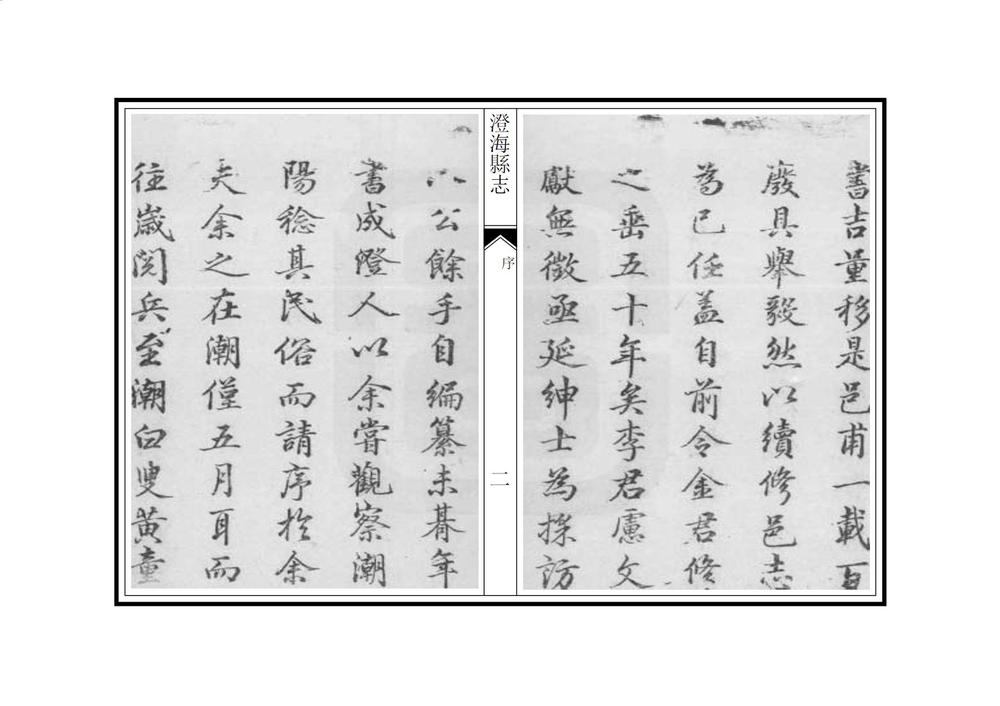 書吉量移是邑甫一載百
廢具舉毅然以續修邑志
為已任盖自前令金君修
之垂五十年矣李君慮文
獻無徵亟延紳士為採訪
澄海縣志
序
二
以公餘手自編纂未朞年
書成澄人以余嘗觀察潮
陽稔其民俗而請序於余
夫余之在潮僅五月耳而
往歲閱兵至潮白叟黃童